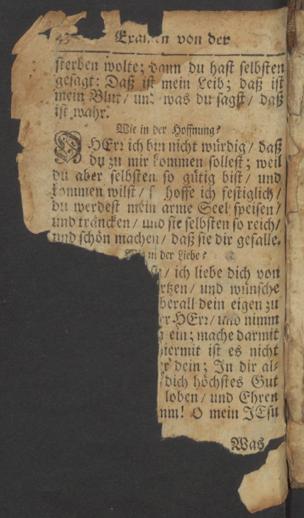 Examen von der
sterben wolte; dann du hast selbsten
gesagt: Daß ist mein Leib; daß ist
mein Blut/ und was du sagst/ daß
ist wahr.
Wie in der Hoffnung?
O HErr ich bin nicht würdig/ daß
du zu mir kommen sollest; weil
du aber selbsten so gütig bist/ und
kommen wilst/ so hoffe ich festiglich/
du werdest mein arme Seel speisen/
und träncken/ und sie selbsten so reich/
und schön machen/ daß sie dir gefalle.
Wie in der Liebe?
/ ich liebe dich von
rtzen/ und wünsche
berall dein eigen zu
er HErr/ und nimm
ein; mache darmit
iermit ist es nicht
dein; In dir al-
dich höchstes Gut
loben/ und Ehren
nm! O mein JEsu
Was